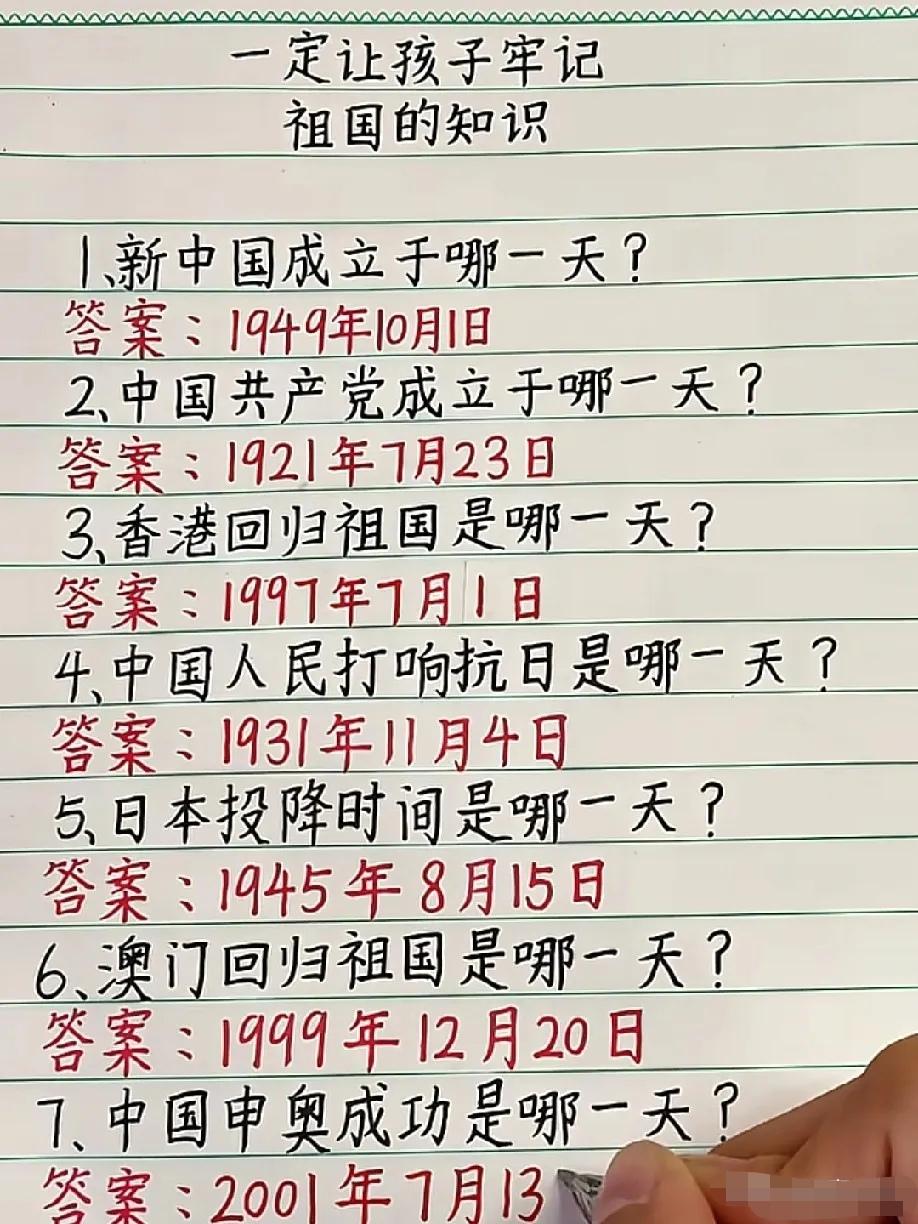 一定让孩子牢记
祖国的知识
1、新中国成立于哪一天？
答案：1949年10月1日
2、中国共产党成立于哪一天？
答案：1921年7月23日
3、香港回归祖国是哪一天？
答案：1997年7月1日
4、中国人民打响抗日是哪一天？
答案：1931年11月4日
5、日本投降时间是哪一天？
答案：1945年8月15日
6、澳门回归祖国是哪一天？
答案：1999年12月20日
7、中国申奥成功是哪一天？
答案：2001年7月13